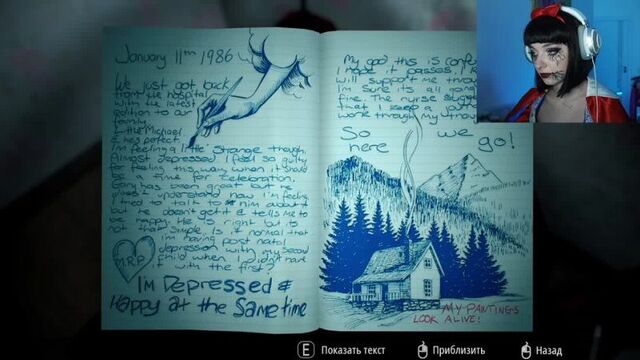 January 11th 1986
We just got back
from the hospital
with the latest
edition to our
family.
Little Michael
& he's perfect.
I'm feeling a little strange though,
Almost depressed. I feel so guilty
for feeling this way when it should
be a time for celebration.
has been great but he
understand how I'm feeling,
I tried to talk to him about it
but he doesn't get it & tells me to
be He is right but it's
not that simple. Is it normal that
I'm having post natal
depression with my second
child when I didn't have
it with the first?
M.R.P.
I'm Depressed &
Happy at the Same time
My god this is
I hope it passes, I
will support me
I'm sure its all
fine. The nurse
that I keep a
work through my
So here we go!
MY PAINTINGS
LOOK ALIVE!
E Показать текст
Приблизить
Назад